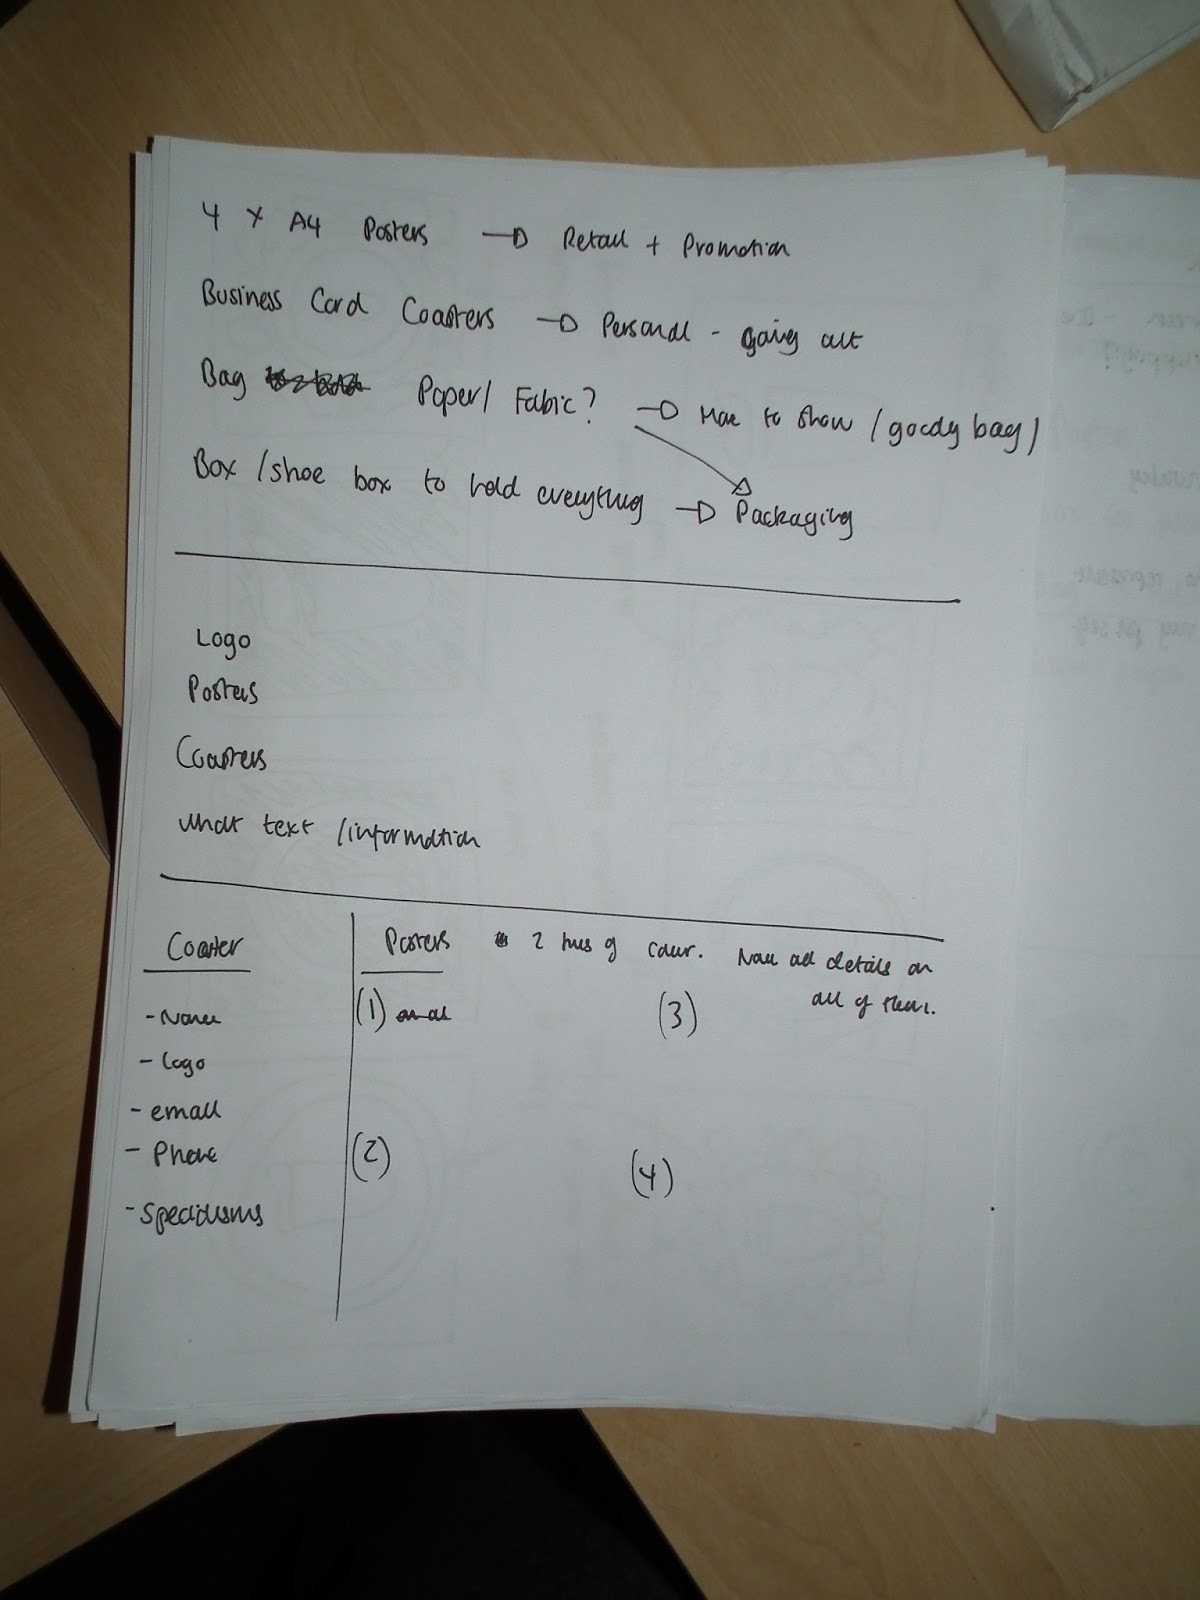 4 x A4 Posters → Retail + Promotion
Business Card Coasters → Personal - going out
Bag Paper/ Fabric? → More to show /goody bag/
Box /shoe box to hold everything → Packaging
Logo
Posters
Coasters
what text /information
Coaster
- Name
- Logo
- email
- Phone
- Specialisms
Posters 2 hues of colour. Name and details on
all of them.
(1) (3)
(2) (4)